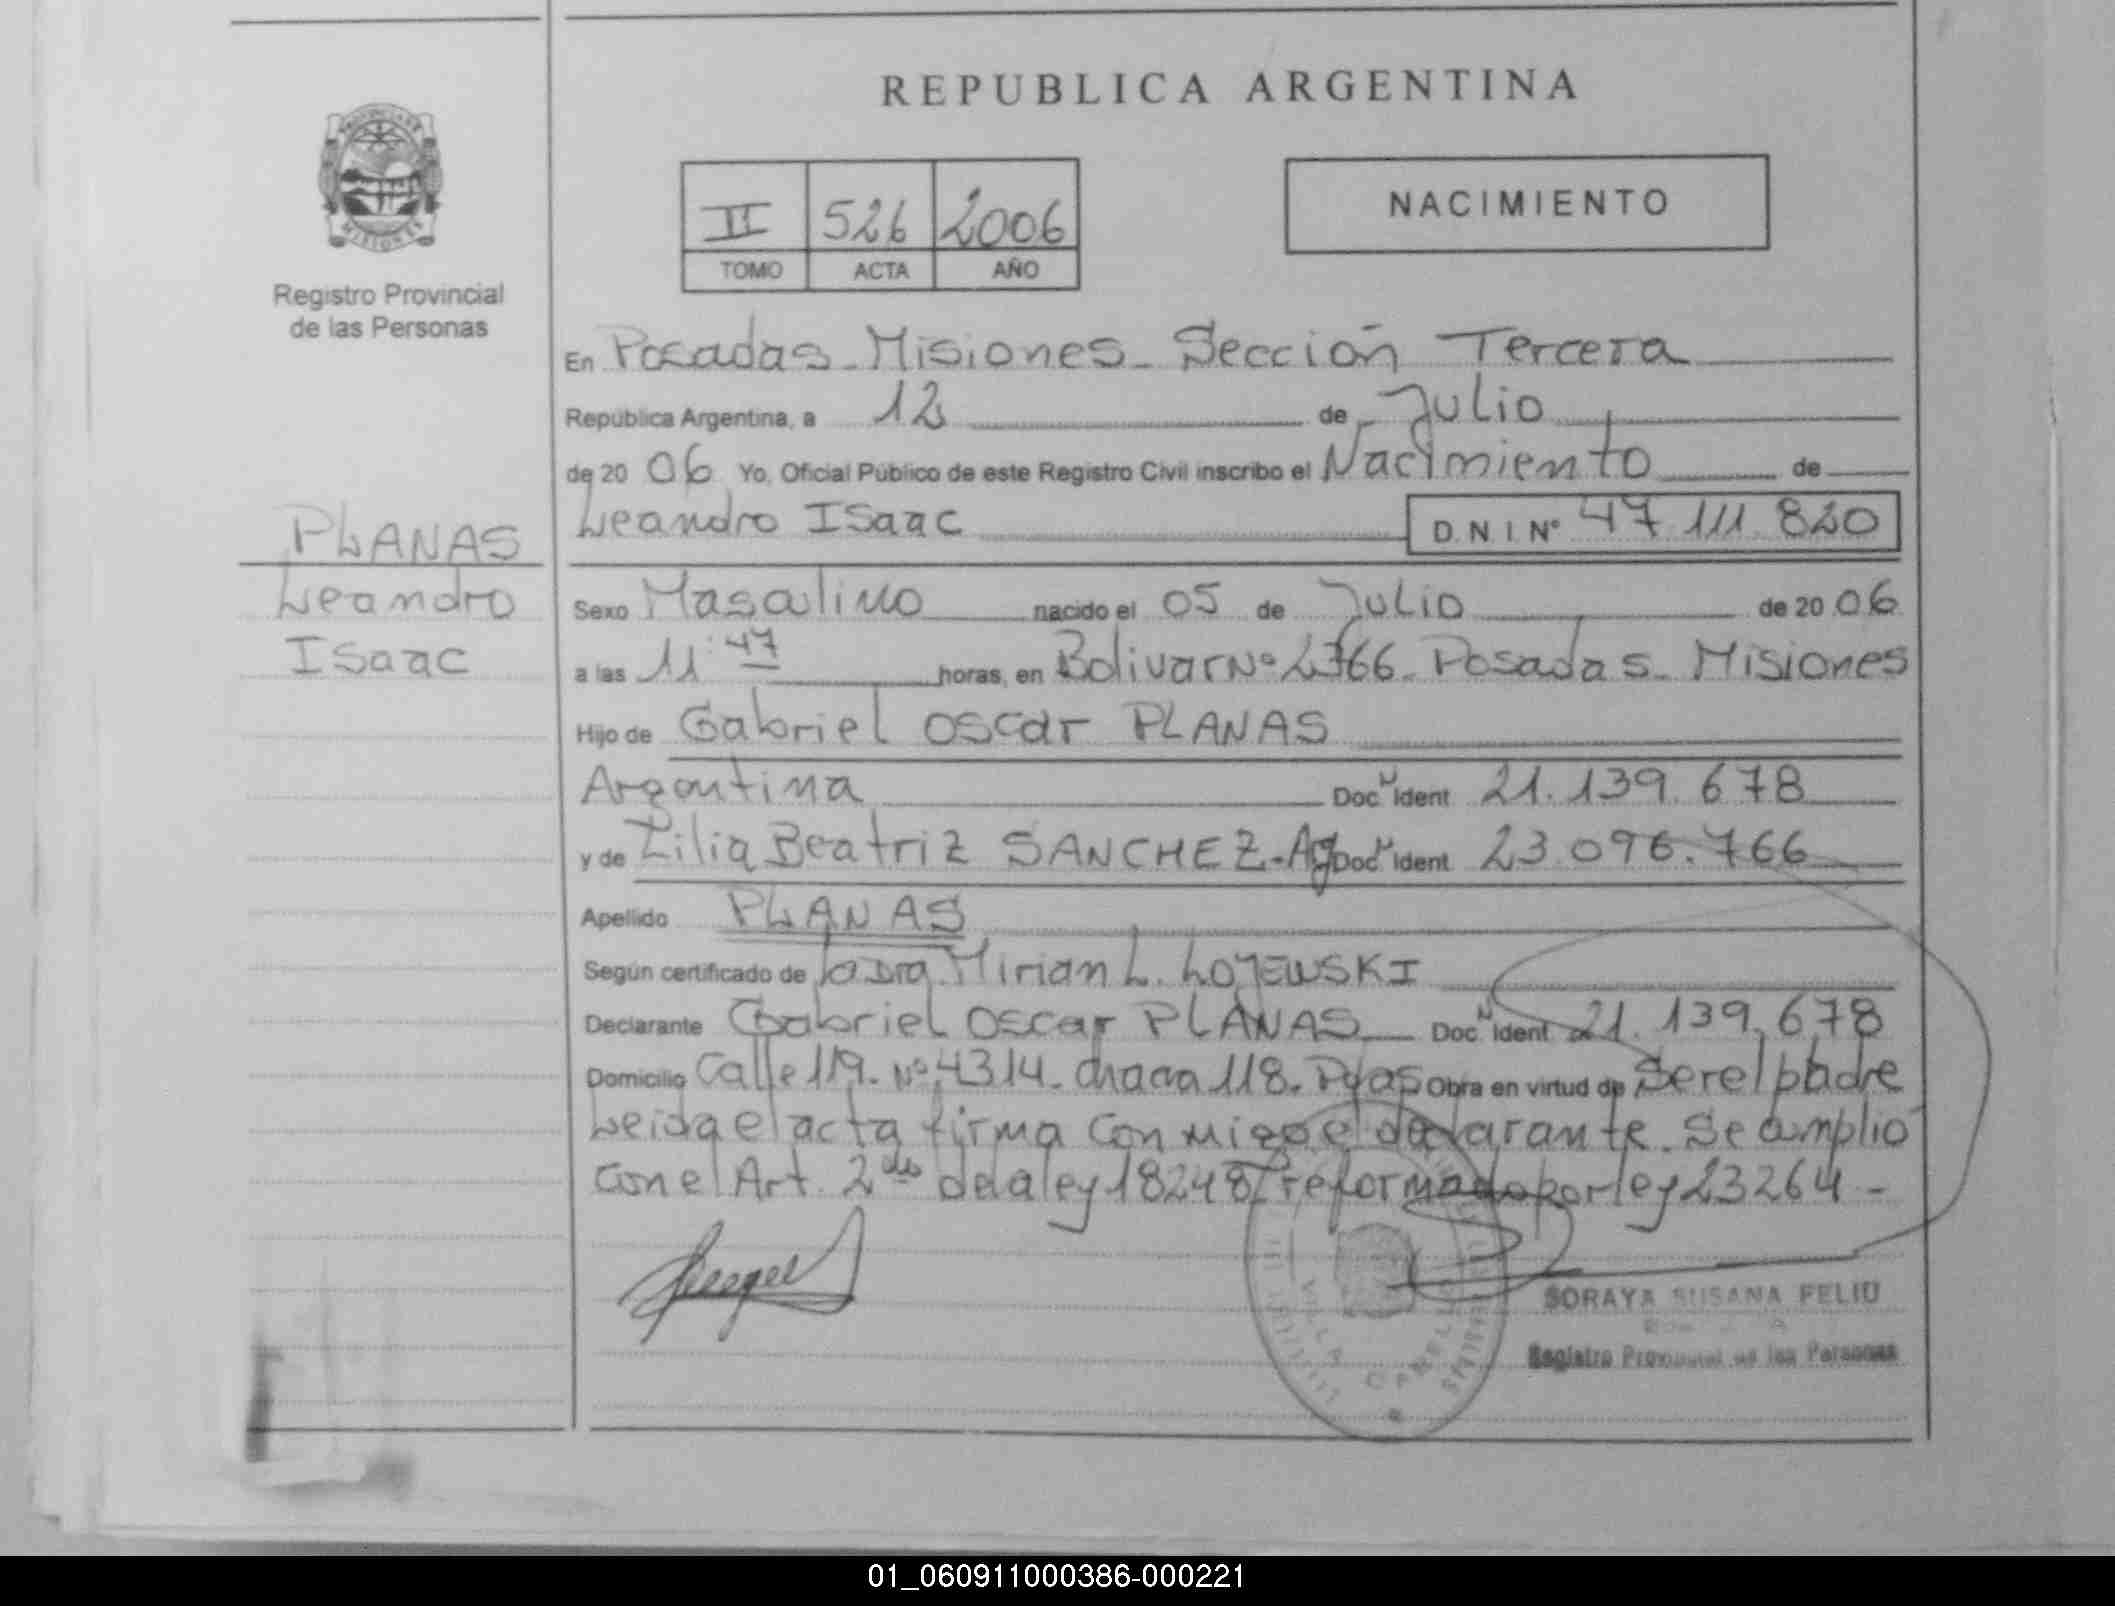 REPUBLICA ARGENTINA
PROVINCIA DE
MISIONES
Registro Provincial
de las Personas
II 526 2006
TOMO ACTA AÑO
NACIMIENTO
En Posadas - Misiones - Sección Tercera
República Argentina, a 12 de Julio
de 20 06 Yo, Oficial Público de este Registro Civil inscribo el Nacimiento de
Leandro ISaac D.N.I Nº 47.111.820
PLANAS
Leandro
ISaac
Sexo Masculino nacido el 05 de Julio de 20 06
a las 11:47 horas, en Bolivar Nº 2766 - Posadas - Misiones
Hijo de Gabriel Oscar PLANAS
Argentina Doc N Ident 21.139.678
y de Lilia Beatriz SANCHEZ - Ag Doc N Ident 23.096.766
Apellido PLANAS
Según certificado de la Dra. Mirian L. LOJEWSKI
Declarante Gabriel Oscar PLANAS Doc N Ident 21.139.678
Domicilio Calle 119 - Nº 4314 - chacra 118 - Pdas Obra en virtud de Ser el padre
Leida el acta firma conmigo el declarante. Se cumplio
con el Art. 2do de la ley 18248 reformado por ley 23264 -
VILLA CABELLO
SORAYA SUSANA FELIU
Registro Provincial de las Personas
01_060911000386-000221